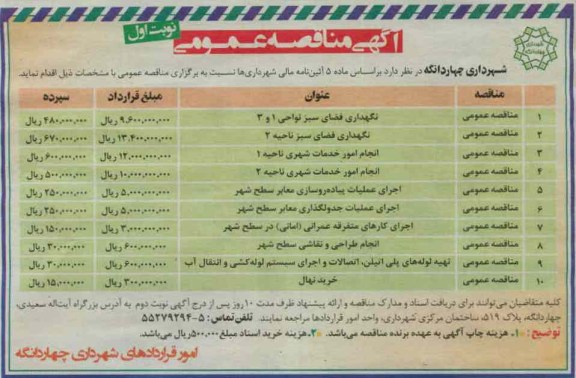 نوبت اول
آگهی مناقصه عمومی
شهرداری چهاردانگه در نظر دارد براساس ماده ۵ آئین‌نامه مالی شهرداری‌ها نسبت به برگزاری مناقصه عمومی با مشخصات ذیل اقدام نماید.
مناقصه عنوان مبلغ قرارداد سپرده
۱ مناقصه عمومی نگهداری فضای سبز نواحی ۱ و ۳ ۹,۶۰۰,۰۰۰,۰۰۰ ریال ۴۸۰,۰۰۰,۰۰۰ ریال
۲ مناقصه عمومی نگهداری فضای سبز ناحیه ۲ ۱۳,۴۰۰,۰۰۰,۰۰۰ ریال ۶۷۰,۰۰۰,۰۰۰ ریال
۳ مناقصه عمومی انجام امور خدمات شهری ناحیه ۱ ۱۲,۰۰۰,۰۰۰,۰۰۰ ریال ۶۰۰,۰۰۰,۰۰۰ ریال
۴ مناقصه عمومی انجام امور خدمات شهری ناحیه ۲ ۱۰,۰۰۰,۰۰۰,۰۰۰ ریال ۵۰۰,۰۰۰,۰۰۰ ریال
۵ مناقصه عمومی اجرای عملیات پیاده‌روسازی معابر سطح شهر ۵,۰۰۰,۰۰۰,۰۰۰ ریال ۲۵۰,۰۰۰,۰۰۰ ریال
۶ مناقصه عمومی اجرای عملیات جدولگذاری معابر سطح شهر ۵,۰۰۰,۰۰۰,۰۰۰ ریال ۲۵۰,۰۰۰,۰۰۰ ریال
۷ مناقصه عمومی اجرای کارهای متفرقه عمرانی (امانی) در سطح شهر ۳,۰۰۰,۰۰۰,۰۰۰ ریال ۱۵۰,۰۰۰,۰۰۰ ریال
۸ مناقصه عمومی انجام طراحی و نقاشی سطح شهر ۶۰۰,۰۰۰,۰۰۰ ریال ۳۰,۰۰۰,۰۰۰ ریال
۹ مناقصه عمومی تهیه لوله‌های پلی اتیلن، اتصالات و اجرای سیستم لوله‌کشی و انتقال آب ۶۰۰,۰۰۰,۰۰۰ ریال ۳۰,۰۰۰,۰۰۰ ریال
۱۰ مناقصه عمومی خرید نهال ۳۰۰,۰۰۰,۰۰۰ ریال ۱۵,۰۰۰,۰۰۰ ریال
کلیه متقاضیان می‌توانند برای دریافت اسناد و مدارک مناقصه و ارائه پیشنهاد ظرف مدت ۱۰ روز پس از درج آگهی نوبت دوم به آدرس بزرگراه آیت‌اله سعیدی،
چهاردانگه، پلاک ۵۱۹، ساختمان مرکزی شهرداری، واحد امور قراردادها مراجعه نمایند. تلفن تماس: ۵-۵۵۲۷۹۲۹۴
توضیح: *۱. هزینه چاپ آگهی به عهده برنده مناقصه می‌باشد. *۲. هزینه خرید اسناد مبلغ ۵۰۰,۰۰۰ ریال می‌باشد.
امور قراردادهای شهرداری چهاردانگه